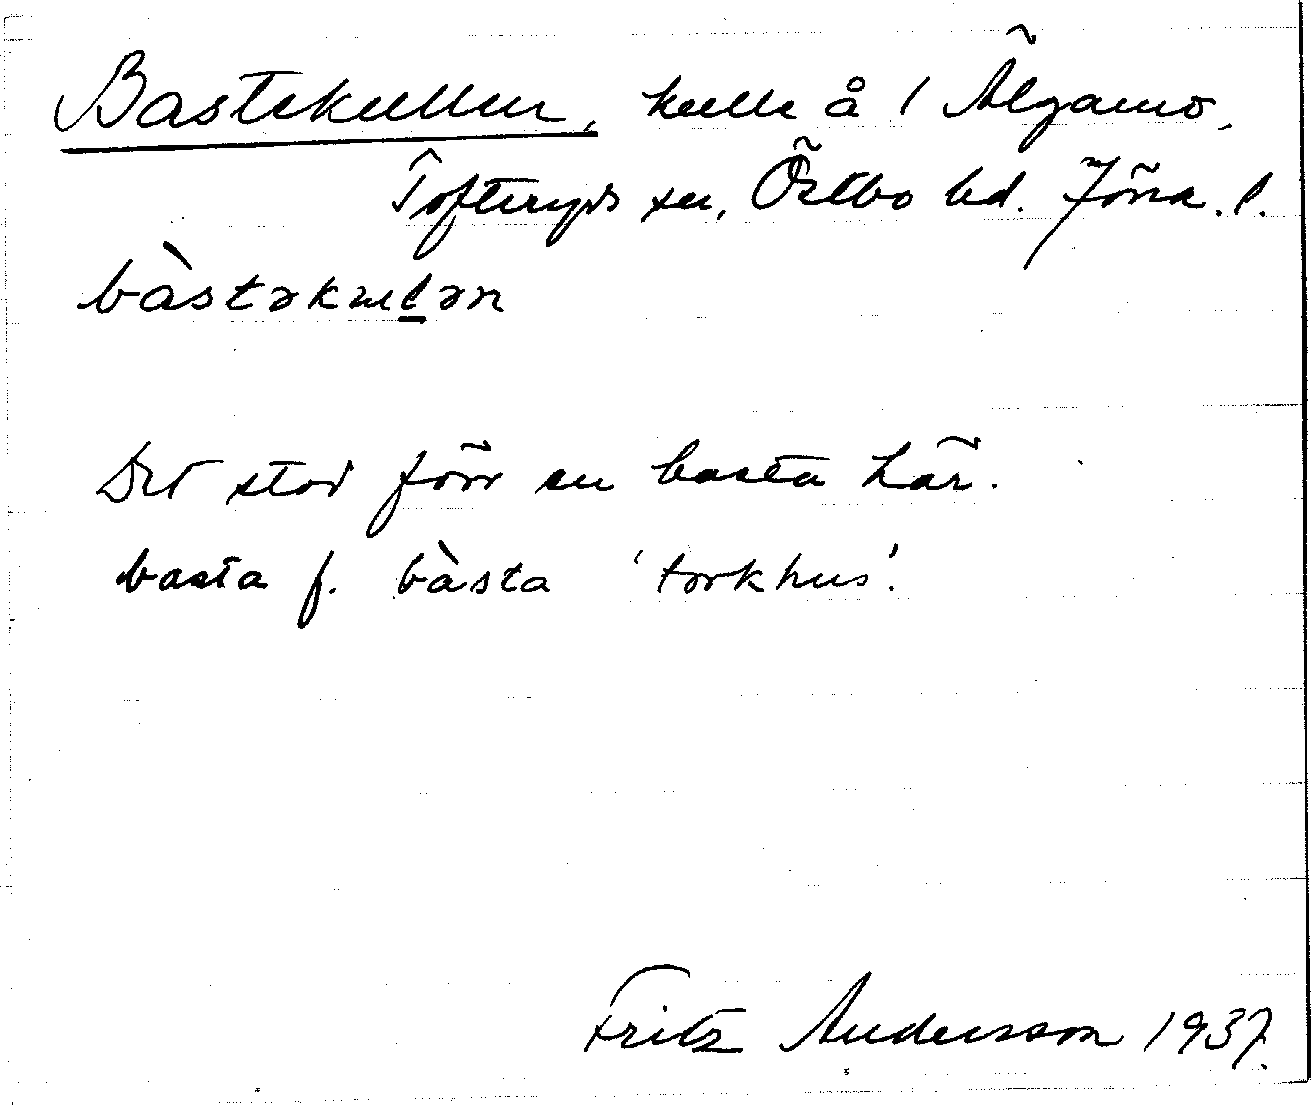 Bastekullen, kulle å 1 Älgamo,
Tofteryds sn, Östbo hd. Jönk. l.
bàstəkulən
Det stod förr en basta här.
basta f. bàsta 'torkhus'.
Fritz Andersson 1937.